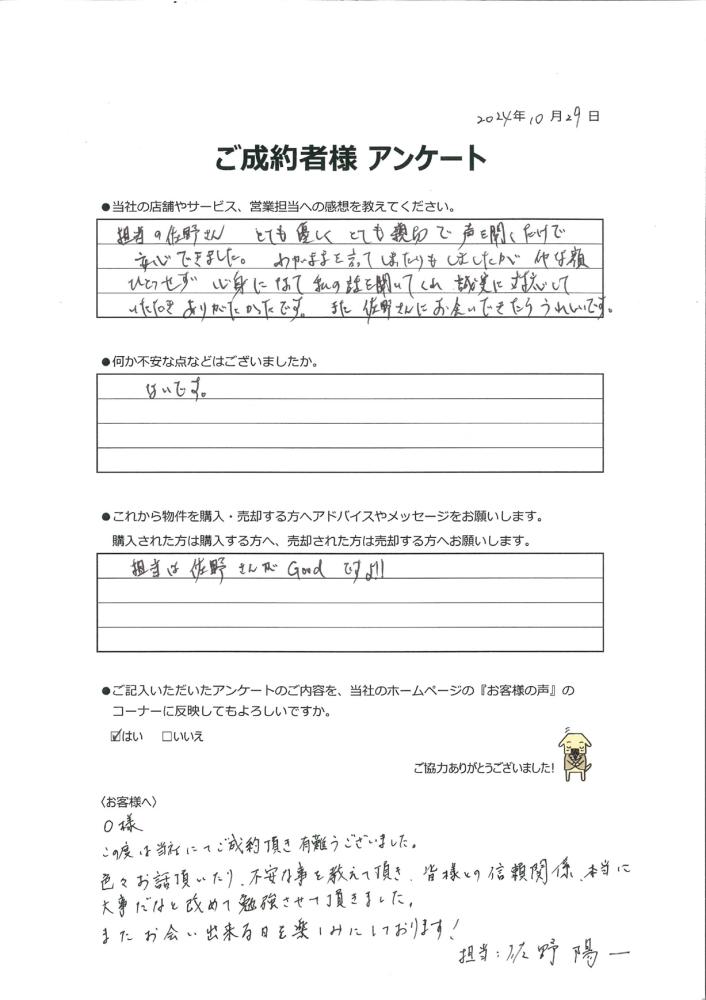 2024年10月29日
ご成約者様 アンケート
●当社の店舗やサービス、営業担当への感想を教えてください。
担当の佐野さん とても優しく とても親切で 声を聞くだけで
安心できました。 わがままを言ってしまったりもしましたが 何な顔
ひとつせず 心身になって 私の話を聞いてくれ 誠実に対応して
いただき ありがたかったです。 また 佐野さんにお会いできたらうれしいです。
●何か不安な点などはございましたか。
ないです。
●これから物件を購入・売却する方へアドバイスやメッセージをお願いします。
購入された方は購入する方へ、売却された方は売却する方へお願いします。
担当は 佐野さんが Good ですよ!!
●ご記入いただいたアンケートのご内容を、当社のホームページの『お客様の声』の
コーナーに反映してもよろしいですか。
☑はい □いいえ
ご協力ありがとうございました!
〈お客様へ〉
O様
この度は当社にてご成約頂き有難うございました。
色々お話頂いたり、不安な事を教えて頂き、皆様との信頼関係、本当に
大事だなと改めて勉強させて頂きました。
またお会い出来る日を楽しみにしております!
担当:佐野 陽一